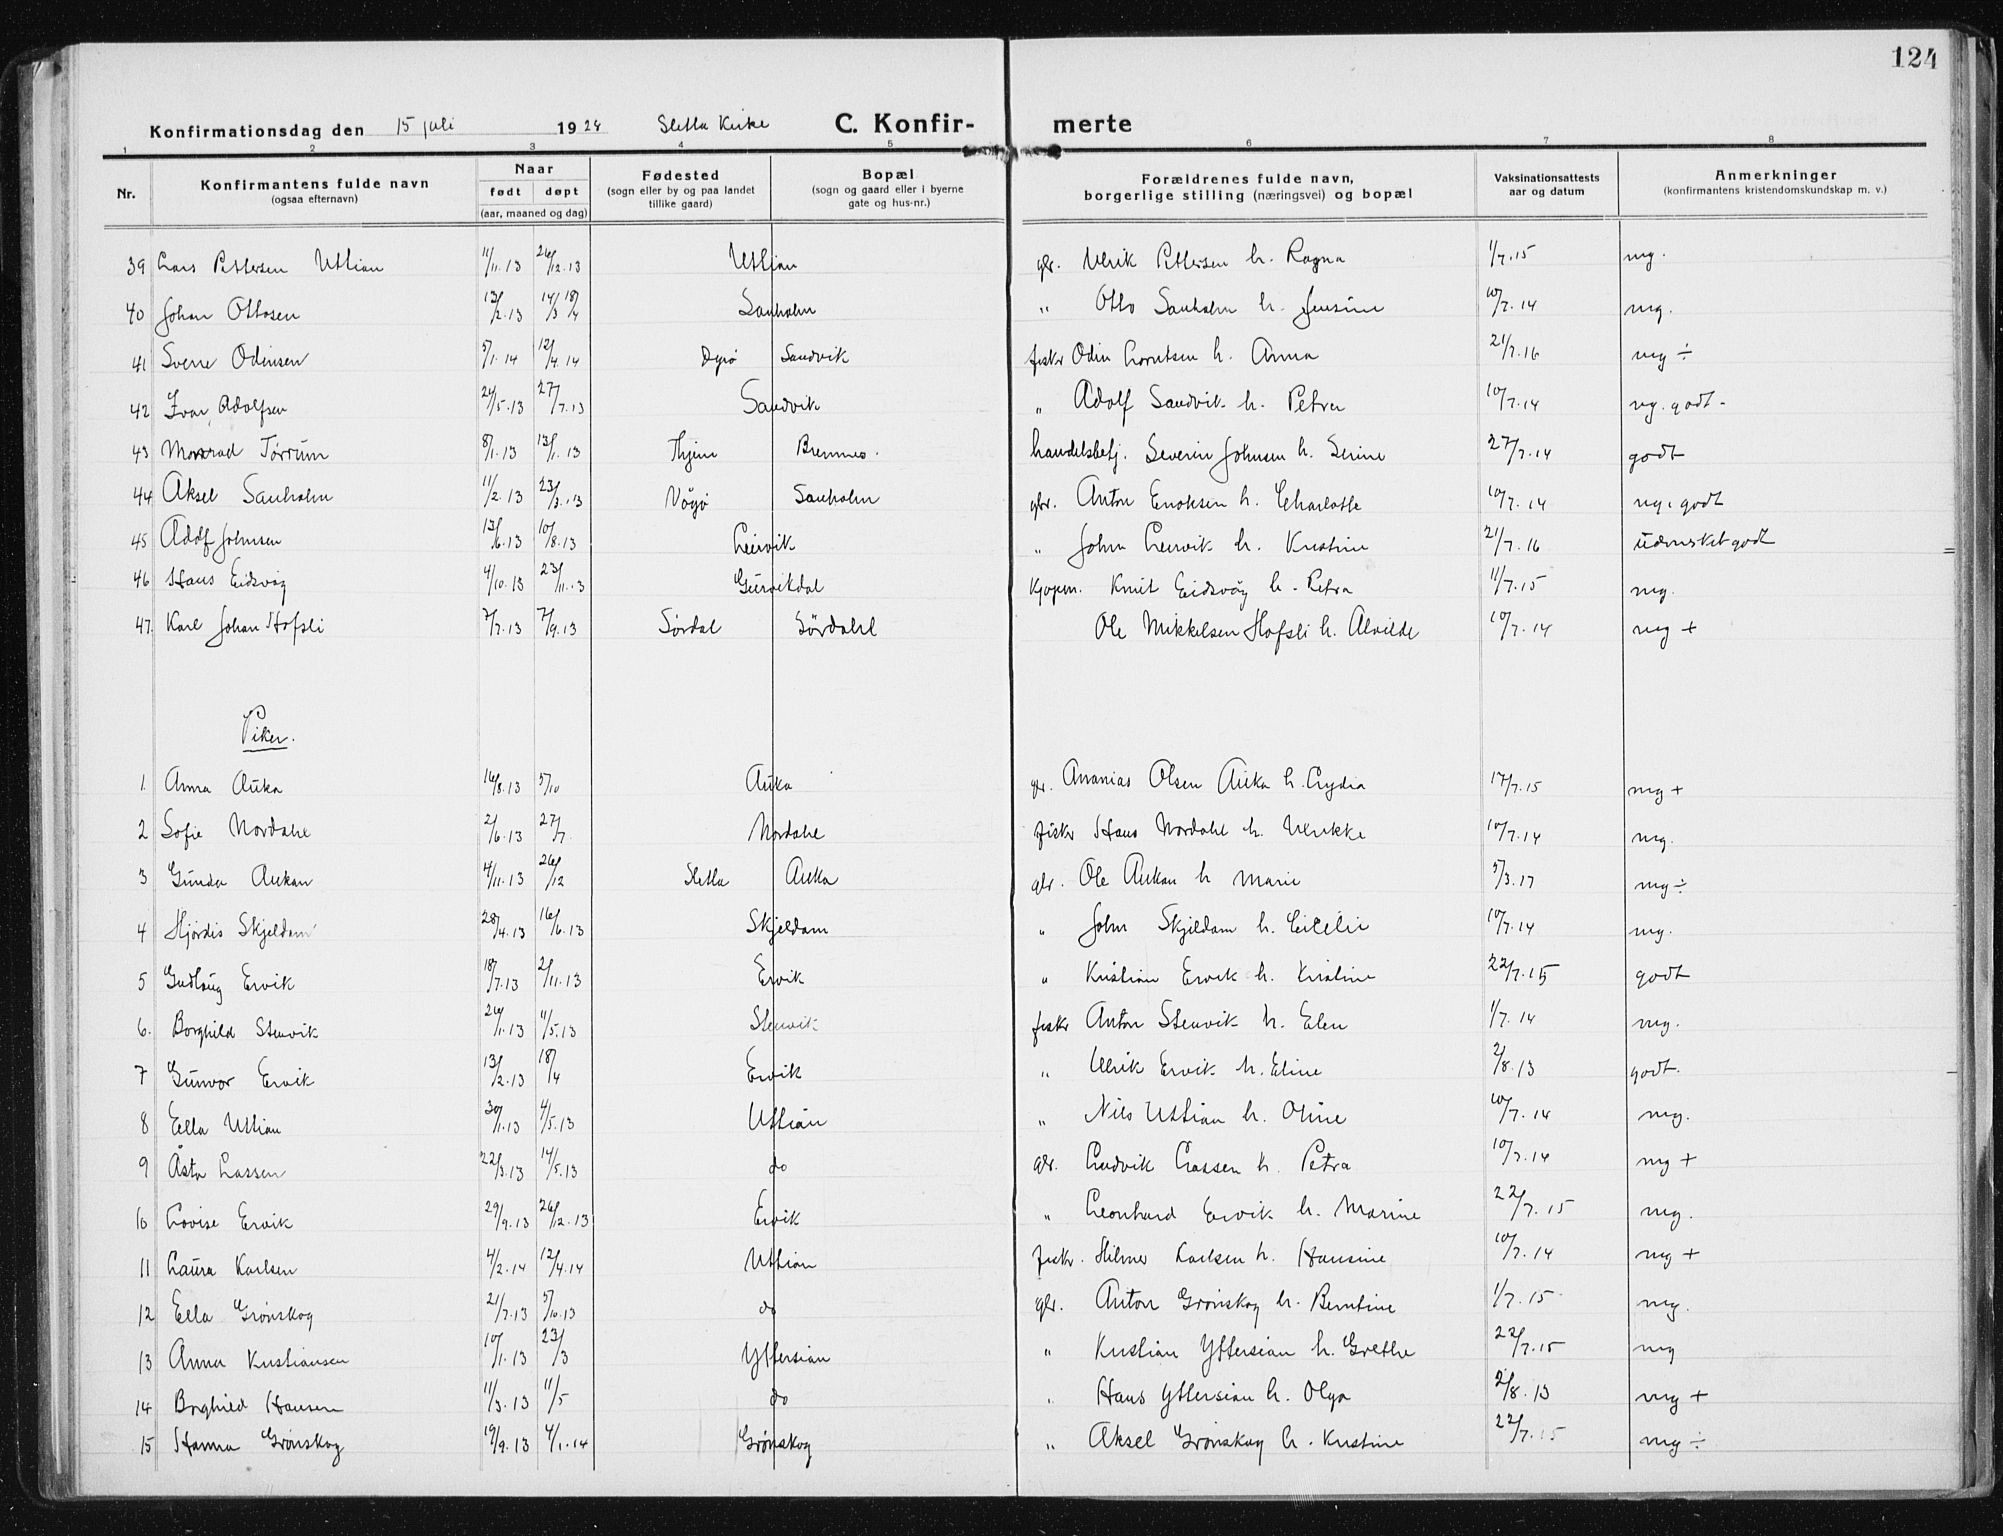 124
Konfirmationsdag den 15 juli 1928 Sletta Kirke C. Konfirmerte
1 2 3 4 5 6 7 8
Nr. Konfirmantens fulde navn (ogsaa efternavn) Naar født døpt (aar, maaned og dag) Fødested (sogn eller by og paa landet tillike gaard) Bopæl (sogn og gaard eller i byerne gate og hus-nr.) Forældrenes fulde navn, borgerlige stilling (næringsvei) og bopæl Vaksinationsattests aar og datum Anmerkninger (konfirmantens kristendomskundskap m. v.)
39 Lars Pettersen Uttian 11/11.13 26/12.13 Uttian gbr. Ulrik Pettersen h. Ragna 1/7.15 mg.
40 Johan Ottosen 13/2.13 14/3 18/4 Sauholm " Otto Sauholm h. Jensine 10/7.14 mg.
41 Sverre Odinsen 5/1.14 12/4.14 Dyrø Sandvik fisker Odin Lorntsen h. Anna 21/7.16 mg ÷
42 Ivar Adolfsen 24/5.13 27/7.13 Sandvik " Adolf Sandvik h. Petra 10/7.14 mg. godt -
43 Monrad Tørrum 8/1.13 13/1.13 Thjem Bremnes. handelsbetj. Severin Johnsen h. Serine 27/7.14 godt
44 Aksel Sauholm 11/2.13 23/3.13 Vågø Sauholm gbr. Anton Enoksen h. Charlotte 10/7.14 ng. godt
45 Adolf Johnsen 13/6.13 10/8.13 Leirvik " John Leirvik h. Kristine 21/7.16 udmerket godt
46 Hans Eidsvåg 4/10.13 23/11.13 Gurvikdal Kjøpm. Knut Eidsvåg h. Petra 11/7.15 mg.
47. Karl Johan Hofsli 7/7.13 7/9.13 Sørdal Sørdahl Ole Mikkelsen Hofsli h. Alvilde 10/7.14 mg +
Piker.
1 Anna Auka 16/8.13 5/10 Auka gbr. Ananias Olsen Auka h. Lydia 17/7.15 mg +
2 Sofie Nordahl 2/6.13 27/7. Nordahl fisker Hans Nordahl h. Ulrikke 10/7.14 mg.
3 Gunda Aukan 4/11.13 26/12 Sletta Auka gbr. Ole Aukan h Marie 5/3.17 mg ÷
4 Hjørdis Skjeldam 28/4.13 16/6.13 Skjeldam " John Skjeldam h. Cicelie 10/7.14 mg.
5 Gudlaug Ervik 18/7.13 2/11.13 Ervik " Kristian Ervik h. Kristine 22/7.15 godt
6. Borghild Stenvik 26/1.13 11/5.13 Stenvik fisker Anton Stenvik h. Elen 1/7.14 mg.
7 Gunvor Ervik 13/2.13 18/4 Ervik " Ulrik Ervik h. Eline 2/8.13 godt.
8 Ella Uttian 30/1.13 4/5.13 Uttian " Nils Uttian h. Oline 10/7.14 mg.
9 Åsta Lassen 22/3.13 14/5.13 do gbr. Ludvik Lassen h. Petra 10/7.14 mg +
10 Lovise Ervik 29/9.13 26/12.13 Ervik " Leonhard Ervik h. Marine 22/7.15 mg.
11 Laura Karlsen 4/2.14 12/4.14 Uttian fisker. Hilmer Karlsen h. Hansine 10/7.14 mg +
12 Ella Grønskog 21/7.13 5/10.13 do gbr. Anton Grønskog h. Berntine 1/7.15 mg.
13 Anna Kristiansen 10/1.13 23/3 Yttersian " Kristian Yttersian h. Grethe 22/7.15 mg
14 Borghild Hansen 11/3.13 11/5 do " Hans Yttersian h. Olga 2/8.13 mg +
15 Hanna Grønskog 19/9.13 4/1.14 Grønskog " Aksel Grønskog h. Kristine 22/7.15 mg ÷